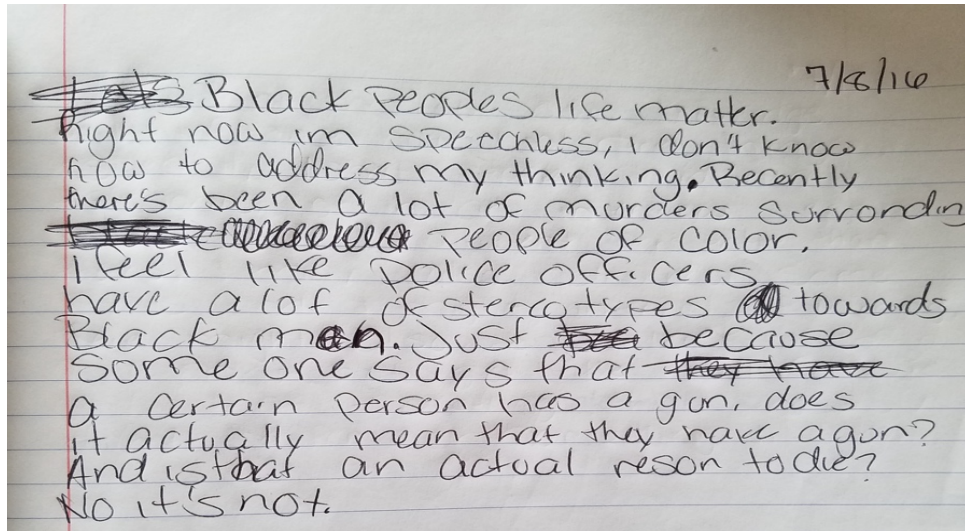 7/8/16
Black Peoples life matter.
Right now im speechless, I don't know
how to address my thinking. Recently
there's been a lot of murders surrondin
People of color.
I feel like police officers
have a lof of stereotypes towards
Black men. Just because
some one says that they have
a certain person has a gun. does
it actually mean that they have a gun?
And is that an actual reson to die?
No it's not.